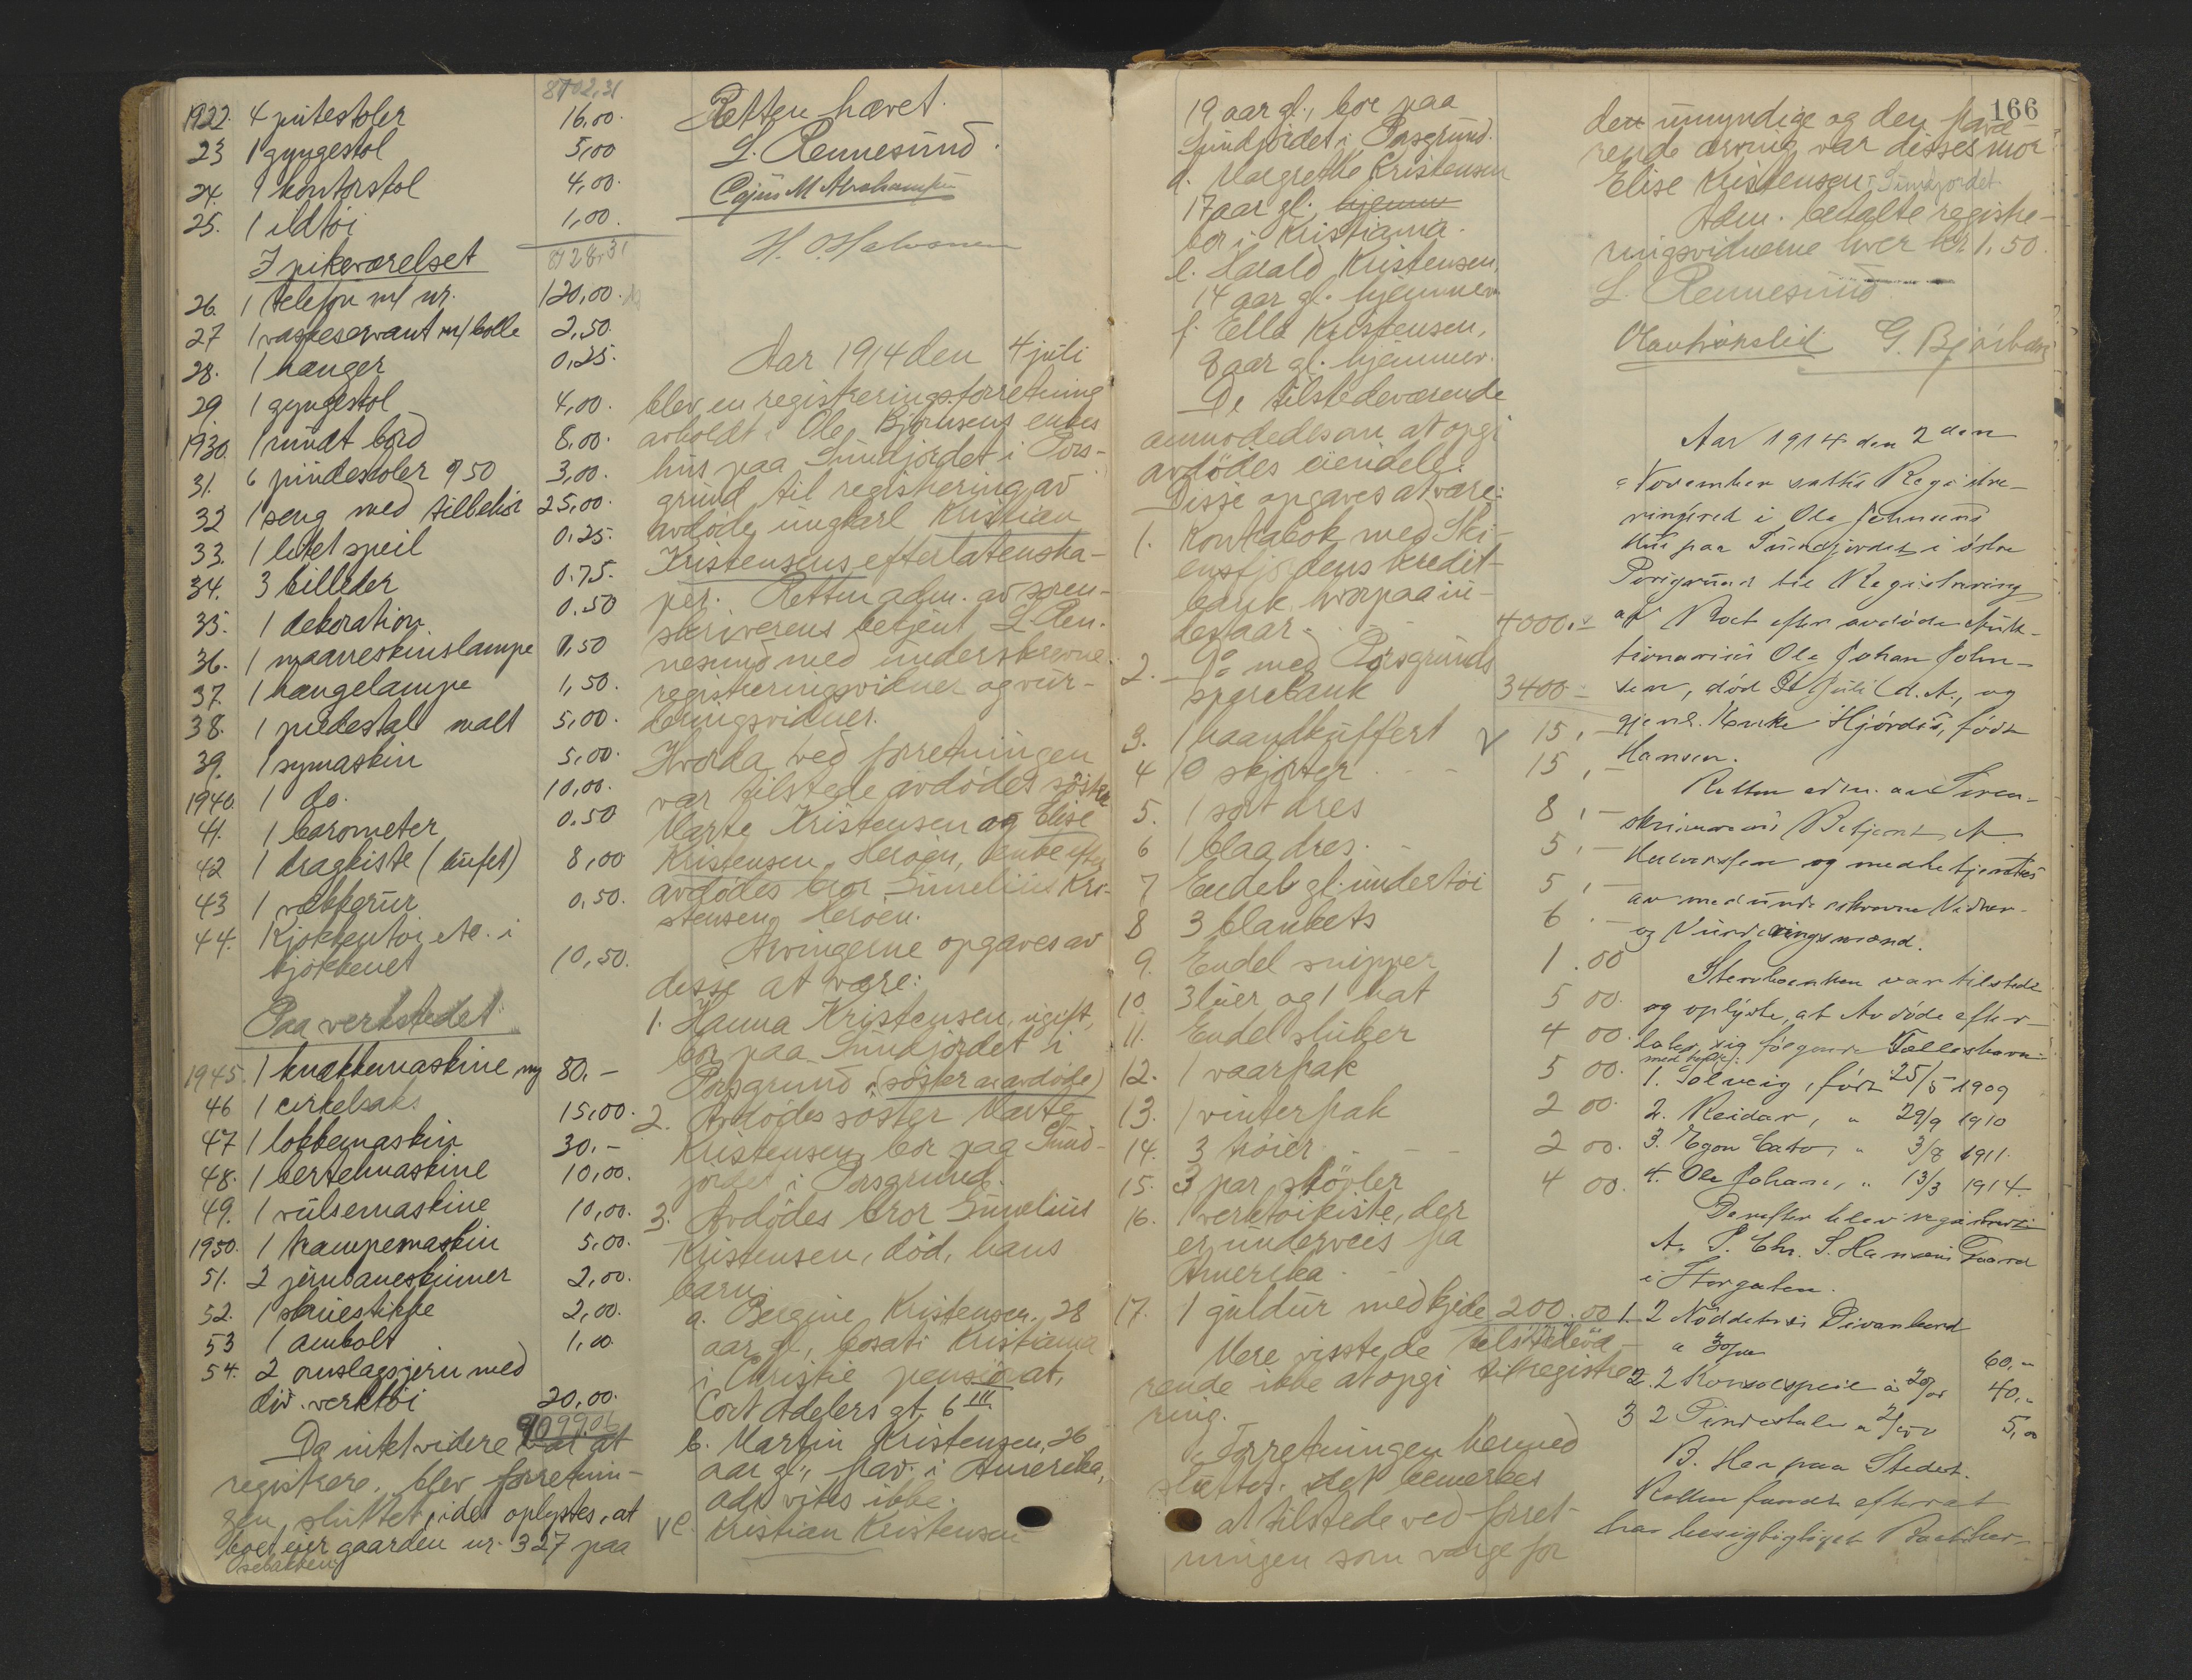 8702,31
1922. 4 putestoler 16,00.
23 1 gyngestol 5,00
24. 1 kontorstol 4,00.
25. 1 ildtöi 1,00.
8728,31
I pikeværelset
26. 1 telefon m/ nr. 120,00.
27 1 vaskeservant m/ bolle 2,50.
28. 1 hænger 0,25.
29. 1 gyngestol 4,00.
1930. 1 rundt bord 8,00.
31. 6 pindestoler 950 3,00.
32 1 seng med tilbehör 25,00.
33. 1 litet speil 0.25.
34. 3 billeder 0.75.
35. 1 dekoration 0.50
36. 1 maaneskinslampe 1,50
37. 1 hængelampe 1,50.
38. 1 piedestal malt 5,00.
39. 1 symaskin 5,00.
1940. 1 do. 10,00.
41. 1 barometer 0.50
42 1 dragkiste (bufet) 8,00
43 1 vækkerur 0,50.
44. Kjökkentöi etc. i
kjökkenet 10,50.
Paa verkstedet
1945. 1 knækkemaskine ny 80.-
46 1 cirkelsaks 15,00.
47 1 lokkemaskin 30.-
48. 1 bertelmaskine 10,00.
49. 1 vulsemaskine 10,00.
1950. 1 krampemaskin 5,00.
51. 2 jernbaneskinner 2,00.
52. 1 skruestikke 2,00.
53 1 ambolt 1,00.
54. 2 omslagsjern med
div. verktöi 20,00.
9099.06
Da intet videre var at
registrere, blev forretnin-
gen sluttet, idet oplystes, at
boet eier gaarden nr. 327 paa
Osebakken
Retten hævet.
L. Rennesund.
Cajus M Abrahamsen
H. O. Halvorsen
Aar 1914 den 4 juli
blev en registreringsforretning
avholdt i Ole Björnsens enkes
hus paa Sundjordet i Pors-
grund til registrering av
avdöde ungkarl Kristian
Kristensens efterlatenska-
per. Retten adm. av soren-
skriverens betjent L Ren-
nesund med underskrevne
registreringsvidner og vur-
deringsvidner.
Hvorda ved forretningen
var tilstede avdödes söster
Marte Kristensen og Elise
Kristensen, Heröen, enke efter
avdödes bror Sunelius Kri-
stensen Heröen.
Arvingerne opgaves av
disse at være:
1. Hanna Kristensen, ugift,
bor paa Sundjordet i
Porsgrund (söster av avdöde)
2. Avdödes söster Marte
Kristensen, bor paa Sund-
jordet i Porsgrund.
3. Avdödes bror Sunelius
Kristensen, död, hans
barn:
a. Bergine Kristensen, 28
aar gl., bosat i Kristiania
i Christie pensionat,
Cort Adelers gt 6 III
b. Martin Kristensen, 26
aar gl., frav. i Amerika,
adr vites ikke.
v c. Kristian Kristensen
19 aar gl., bor paa
Sundjordet i Porsgrund.
d. Margrethe Kristensen
17 aar gl. hjemme
bor i Kristiania.
e. Harald Kristensen,
14 aar gl. hjemmev.
f. Ella Kristensen,
8 aar gl. hjemmev.
De tilstedeværende
anmodedes om at opgi
avdödes eiendele.
Disse opgaves at være:
1. Kontrabok med Ski-
ensfjordens kredit-
bank, hvorpaa in-
destaar 4000.-
2. - Do med Porsgrunds
sparebank 3400 -
3. 1 haandkuffert v 15,-
4 10 skjorter 15,-
5. 1 sort dres 8,-
6 1 blaa dres. 5,-
7 Endel gl. undertöi 5,-
8 3 blankets 6.-
9. Endel snipper 1.00
10. 3 luer og 1 hat 5 00.
11. Endel slukser 4 00.
12. 1 vaarfrak 5 00.
13. 1 vinterfrak 2 00.
14. 3 tröier 2 00.
15. 3 par stövler 4 00.
16. 1 verktöikiste, der
er underveis fra
Amerika.
17. 1 guldur med kjede 200.00
Mere visste de tilstedevæ-
rende ikke at opgi til registre-
ring.
Forretningen hermed
sluttet. Det bemerkes
at tilstede ved forret-
ningen som verge for
166
den umyndige og den fravæ-
rende arving var disses mor
Elise Kristensen, Sundjordet
Adm. betalte registre-
ringsvidnerne hver kr. 1,50.
L. Rennesund
G. Björbæk
Aar 1914 den 2den
November sattes Registre-
ringsret i Ole Johnsens
Hus paa Sundjordet i östre
Porsgrund til Registrering
af Boet efter avdöde Funk-
tionærius Ole Johan John-
sen, död juli d. A., og
gjenl. Enke Hjördis, födt
Hansen.
Retten adm. av Soren-
skriverens Betjent A
Halvorsen og medbetjentes
av med underskrevne Vidner
og Vurderingsmænd.
Stervboenken var tilstede
og oplyste, at Avdöde efter-
later sig fölgende Fællesbarn
med hende:
1. Solveig, födt 25/5 1909
2. Reidar, " 29/9 1910
3. Egon Cato, " 3/8 1911.
4. Ole Johan, " 13/3 1914.
Derefter blev registreret
A. I Chr. S. Hansens Gaard
i Storgaten.
1. 2 Nöddetræs Divanbord
a 30/00 60,-
2. 2 Konsolspeile à 20/00 40,-
3 2 Pindestoler a 2/50 5,00
B. Her paa Stedet.
Retten fandt efterat
ha besigtigliget